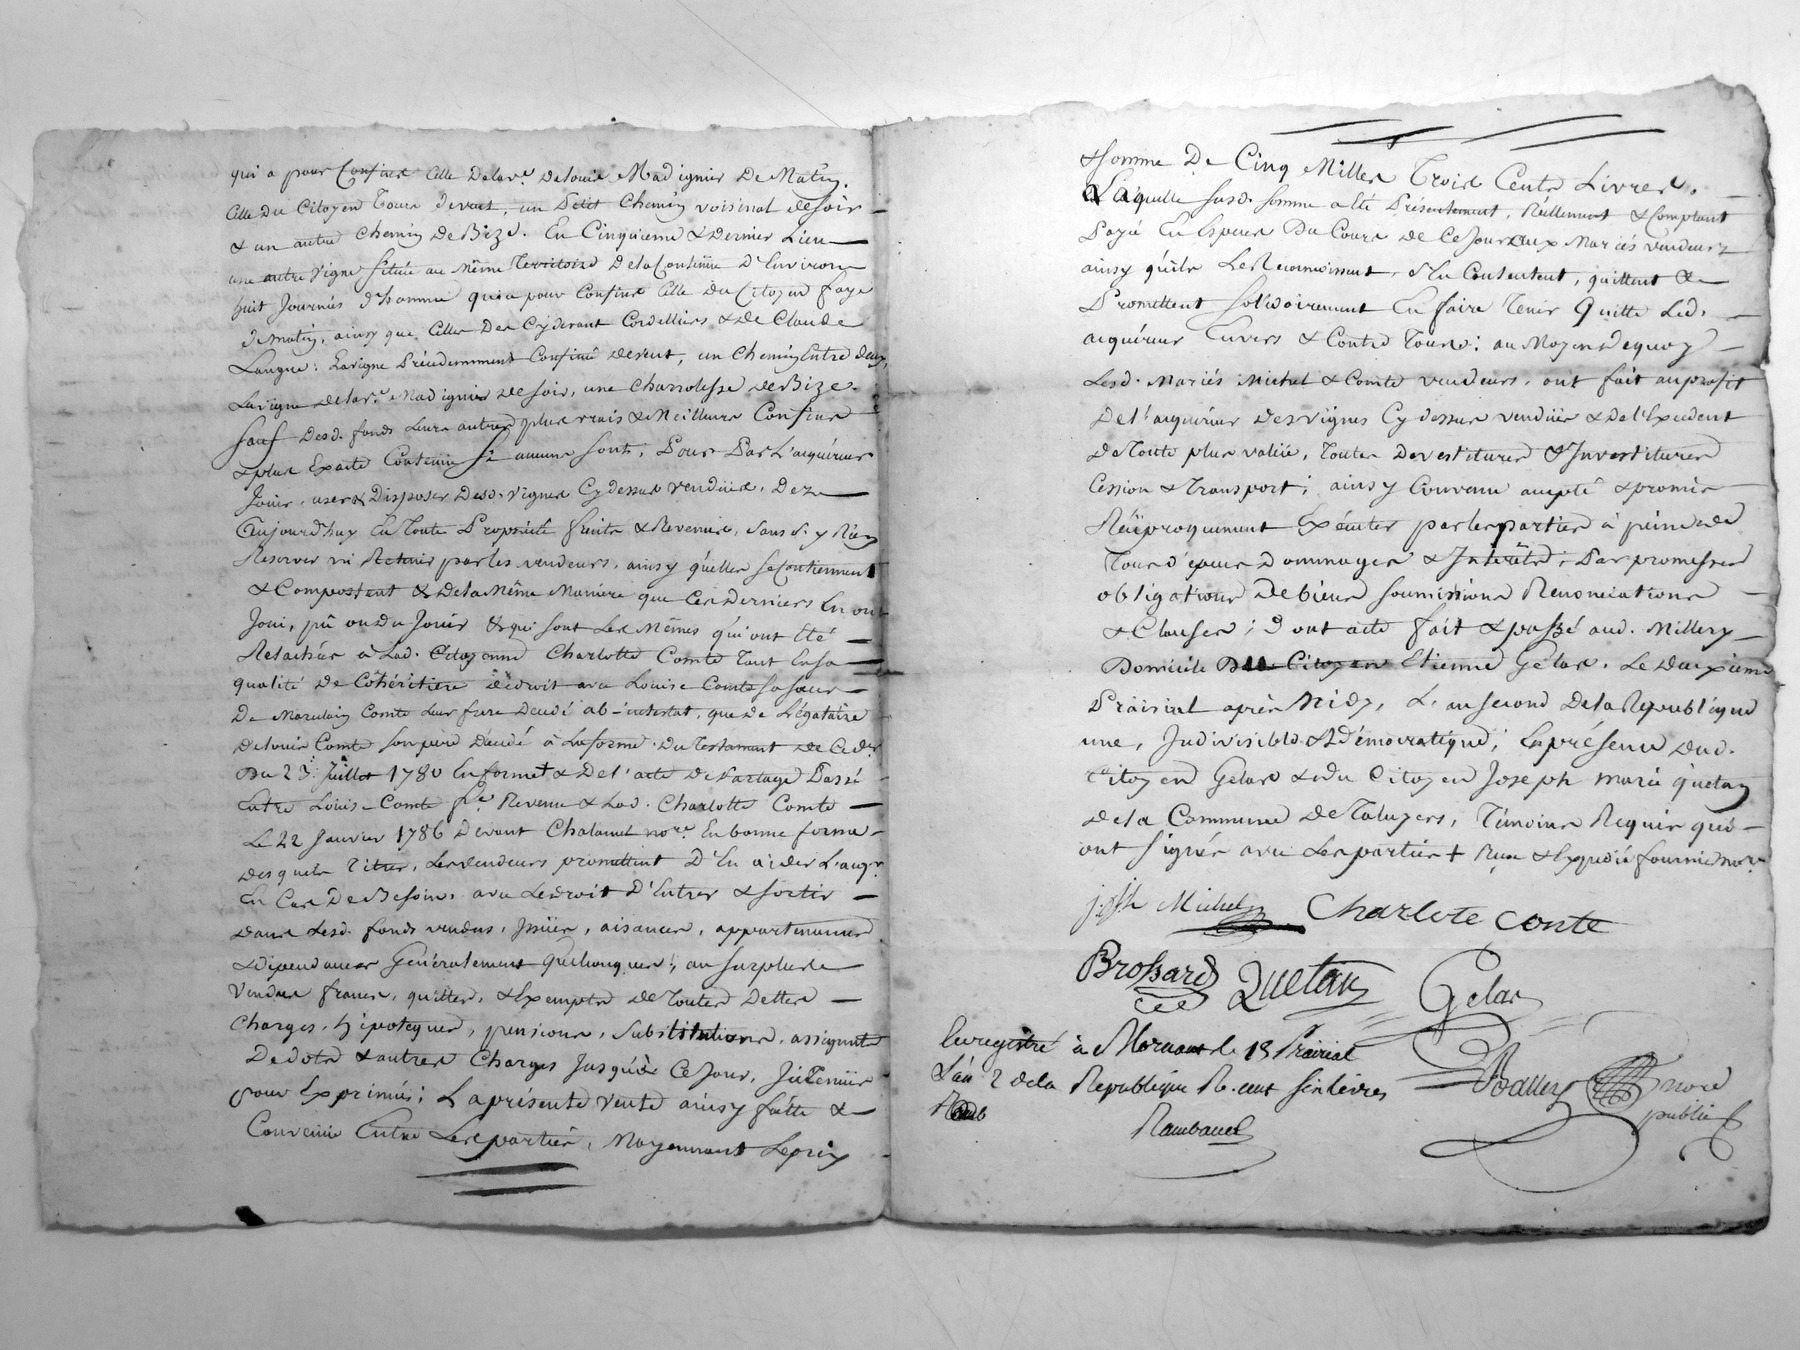 qui a pour Confins Celle Delave. Delouis Madignier De Matin.
Celle Du Citoyen Tours Devent, un Petit Chemin voisinal de soir
& un autre Chemin De Bize. En Cinquieme & Dernier Lieu
une autre vigne Située au Même Territoire De la Contenüe D'Environ
huit Journés d'homme qui a pour Confins Celle Du Citoyen faye
De matin, ainsy que Celles Des Cydevant Cordelliers & De Claude
Laugne: Lavigne Précedemment Confinée Devent, un Chemin Entre deux,
Lavigne delave. Madignier De soir, une Charrolesse de Bize.
Sauf Desd. fonds Leurs autres plus vrais & Meilleurs Confins
& plus Exacte Contenüe Si aucuns Sont; Pour Par L'acquéreur
Jouir, user & Disposer Desd. vignes Cydessus vendües, Dez
Aujourd'huy En Toute Propriété fruits & Revenus, Sans d'y Rien
Reserver ni Retenir par les vendeurs, ainsy qu'elles se Contiennent
& Compostent & De la Même Maniere que Ces Derniers En ont
Joui, pû ou Du Jouir & qui sont Les Mêmes qui ont Eté
Relachés à Lad. Citoyenne Charlotte Comte Tant En sa
qualité De Cohéritiere De droit avec Louise Comte sa sœur
De Comte Leur frere Decedé ab-intestat, que De Légataire
De Louis Comte son père Décedé à La forme Du Testament De Ce d.er
Du 23 Juillet 1780 En forme & De l'acte De Partage Passé
Entre Louis Comte fle. Revenu & Lad. Charlotte Comte
Le 22 Janvier 1786 Devant Chalamet nore. En bonne forme
Desquels Titres, Les vendeurs promettent D'En aider L'acqr.
En Cas De Besoin, avec Le Droit D'Entrer & Sortir
Dans Lesd. fonds vendus, Jssües, aisances, appartenances
& dépendances Généralement quelconques; au Surplus Le
Vendus francs, quittes, & Exempts De Toutes Dettes
Charges, hipoteques, pensions, Substitutions, assignats
De Dots & autres Charges Jusqu'à Ce Jour,
pour Exprimés; La présente Vente ainsy faitte &
Convenüe Entre Les parties, Moyennant Le prix
& Somme De Cinq Milles Trois Cents Livres.
Laquelle susd. somme a été Présentement, Réellement & Comptant
Payé En Especes Du Cours De Ce Jour aux Mariés vendeurs
ainsy qu'ils Le Reconnoissent, S'En Contentent, quittent &
Promettent Solidairement En faire Tenir Quitte Led.
acquéreur Envers & Contre Tous: au Moyen De quoy
Lesd. Mariés Michel & Comte vendeurs, ont fait au profit
De l'acquéreur Des vignes Cy dessus vendües & de l'Excedent
De Toute plus valüe, Toutes Devestitures & Investitures
Cession & Transport; ainsy Convenu accepté & promis
Réciproquement Exécuter par les parties à peine de
Tous dépens Dommages & Intérêts; Par promesses
obligations De biens Soumissions Renonciations
& Clauses; Dont acte fait & passé aud. Millery
Domicile Du Citoyen Etienne Gelas. Le Deuxieme
Prairial après Midy, L'an second De la Republique
une, Indivisible & Démocratique; En présence Dud.
Citoyen Gelas & Du Citoyen Joseph Marie Quetan
De la Commune De Taluyers, Témoins Requis qui
ont Signés avec Les parties + & Expedié fournie nore.
josph Michel Charlote Conte
Brossard Quetan Gelas
Enregistré à Mornant le 13 Prairial
L'an 2 de la Republique R. cent six livres
Rambaud
nore
public